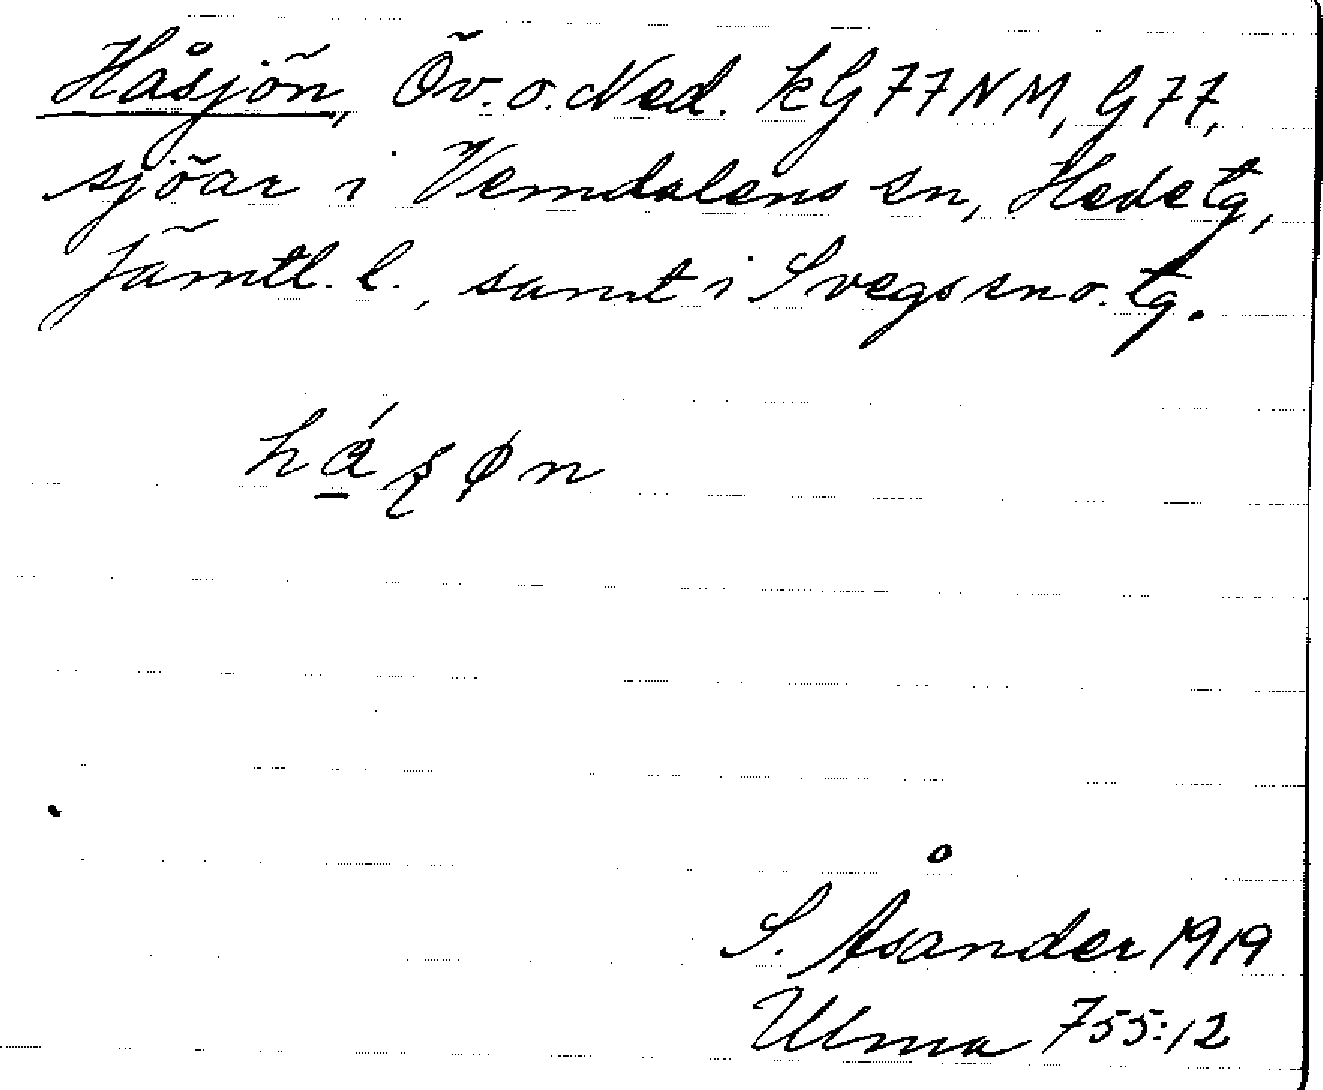 Håsjön, Öv. o. Ned. kG77NM, G77,
sjöar i Vemdalens sn, Hede tg,
Jämtl. l., samt i Svegs sn o. tg.
S. Åsander 1919
Ulma 755:12